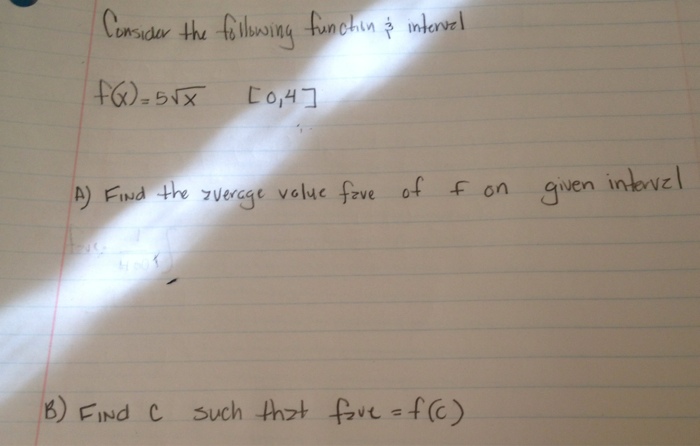 Consider the following function & interval
f(x) = 5√x [0,4]
A) FIND the average value fave of f on given interval
B) FIND C such that fave = f(c)